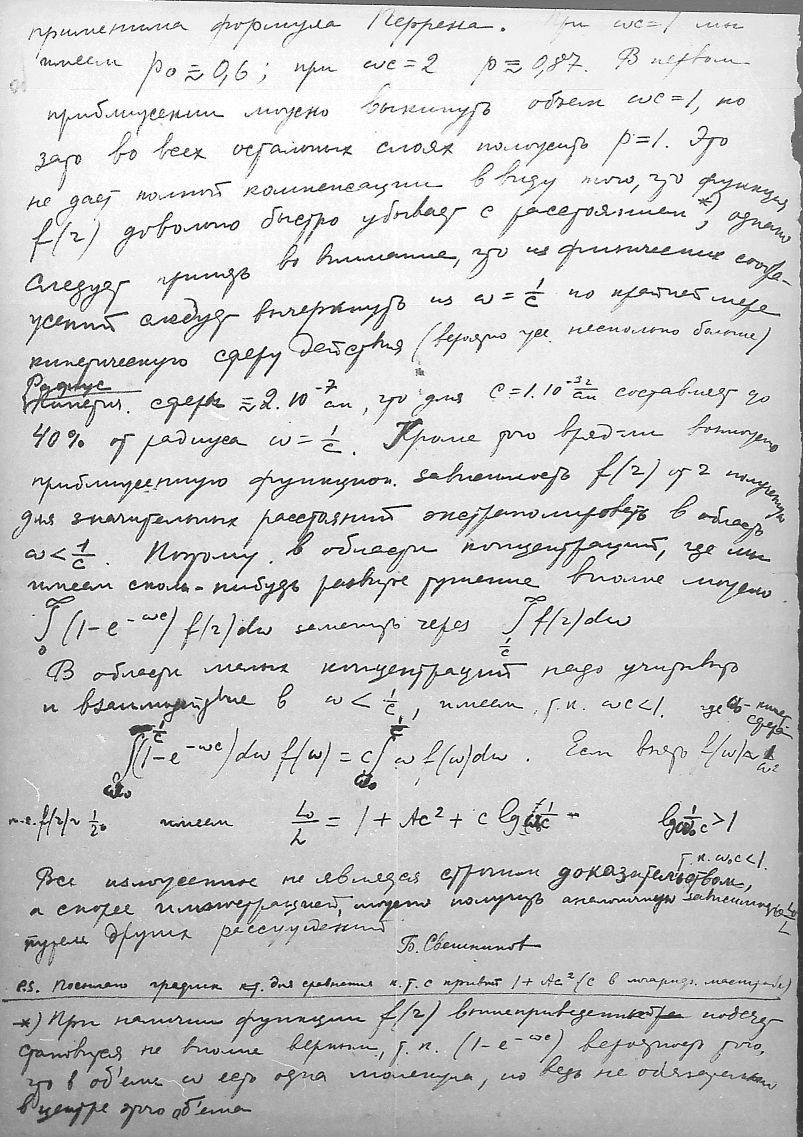 применима формула Перрена. При ωc=1 мы
имеем p₀≈0,6; при ωc=2 p≈0,87. В первом
приближении можно выкинуть объем ωc=1, но
зато во всех остальных слоях положить p=1. Это
не дает полной компенсации в виду того, что функция
f(r) довольно быстро убывает с расстоянием*), однако
следует принять во внимание, что из физических сообра-
жений следует вычеркнуть из ω=1/c по крайней мере
кинетическую сферу действия (вероятно уже несколько больше)
Радиус
кинетич. сферы ≈2.10⁻⁷ см, что для c=1.10⁻³ составляет до
40% от радиуса ω=1/c. Кроме того вряд-ли возможно
приближенную функцион. зависимость f(r) от r полученную
для значительных расстояний экстраполировать в область
ω<1/c. Поэтому в области концентраций, где мы
имеем сколь-нибудь развитое тушение вполне можно
∫₀^∞ (1-e^-ωc) f(r)dω заменить через ∫_{1/c}^∞ f(r)dω
В области малых концентраций надо учитывать
и взаимодействие в ω<1/c, имеем т.к. ωc<1. где ω₀-кинет. сфера-
∫_{ω₀}^{1/c} (1-e^-ωc)dω f(ω) = c∫_{ω₀}^{1/c} ω f(ω)dω. Если взять f(ω)~1/ω²
т.е. f(r)~1/r⁶ имеем L₀/L = 1 + Ac² + c lg 1/ω₀c lg 1/ω₀c >1
т.к. ω₀c<1.
Все изложенное не являясь строгим доказательством,
а скорее иллюстрацией, можно получить аналогичную зависимость L₀/L
путем других рассуждений
Б. Свешников
P.S. Посылаю график к.т. для сравнения к.т. с кривой 1+Ac² (c в логарифм. масштабе)
*) При наличии функции f(r) вышеприведенный подсчет
становится не вполне верным, т.к. (1-e^-ωc) вероятность того,
что в об'еме ω есть одна молекула, но ведь не обязательно
в центре этого об'ема